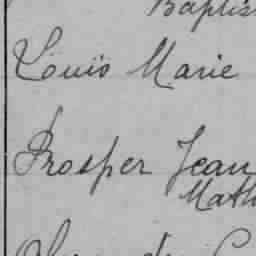 Baptis
Louis Marie
Prosper Jean
Math